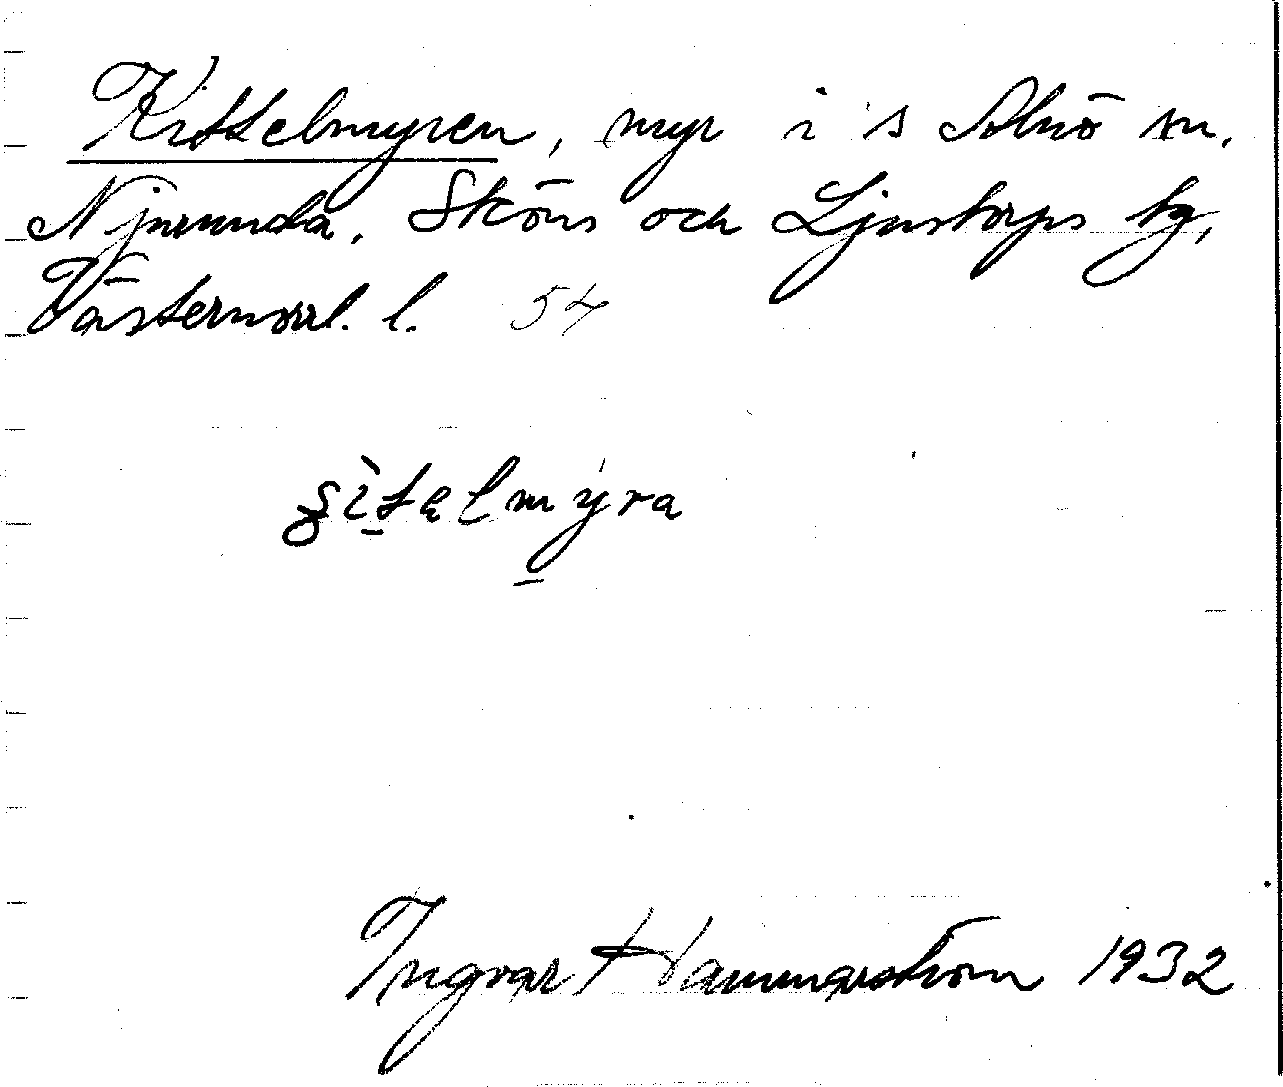 Kittelmyren, myr i s Alnö sn.
Njurunda, Sköns och Ljustorps tg,
Västernorrl. l. 54
Ingvar Hammarström 1932